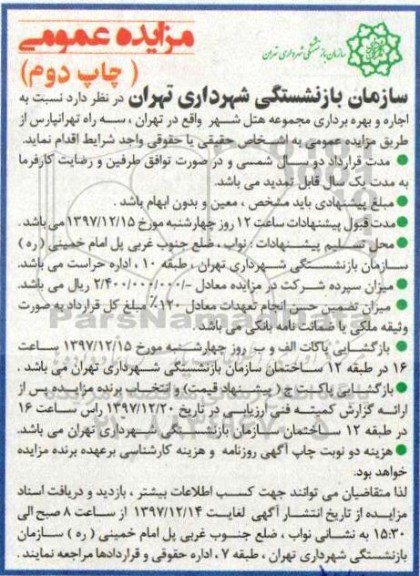 مزایده عمومی
سازمان بازنشستگی شهرداری تهران
( چاپ دوم)
سازمان بازنشستگی شهرداری تهران در نظر دارد نسبت به
اجاره و بهره برداری مجموعه هتل شهر واقع در تهران ، سه راه تهرانپارس از
طریق مزایده عمومی به اشخاص حقیقی یا حقوقی واجد شرایط اقدام نماید.
● مدت قرارداد دو سال شمسی و در صورت توافق طرفین و رضایت کارفرما
به مدت یک سال قابل تمدید می باشد.
● مبلغ پیشنهادی باید مشخص ، معین و بدون ابهام باشد .
● مدت قبول پیشنهادات ساعت ۱۲ روز چهارشنبه مورخ ۱۳۹۷/۱۲/۱۵ می باشد .
● محل تسلیم پیشنهادات : نواب ، ضلع جنوب غربی پل امام خمینی ( ره )
سازمان بازنشستگی شهرداری تهران ، طبقه ۱۰ ، اداره حراست می باشد.
● میزان سپرده شرکت در مزایده معادل -/۲/۴۰۰/۰۰۰/۰۰۰ ریال می باشد.
● میزان تضمین حسن انجام تعهدات معادل ۱۲۰٪ مبلغ کل قرارداد به صورت
وثیقه ملکی یا ضمانت نامه بانکی می باشد .
● بازگشایی پاکات الف و ب روز چهارشنبه مورخ ۱۳۹۷/۱۲/۱۵ ساعت
۱۶ در طبقه ۱۲ ساختمان سازمان بازنشستگی شهرداری تهران می باشد .
● بازگشایی پاکت ج ( پیشنهاد قیمت) و انتخاب برنده مزایده پس از
ارائه گزارش کمیته فنی ارزیابی در تاریخ ۱۳۹۷/۱۲/۲۰ راس ساعت ۱۶
در طبقه ۱۲ ساختمان سازمان بازنشستگی شهرداری تهران می باشد.
● هزینه دو نوبت چاپ آگهی روزنامه و هزینه کارشناسی برعهده برنده مزایده
خواهد بود.
لذا متقاضیان می توانند جهت کسب اطلاعات بیشتر ، بازدید و دریافت اسناد
مزایده از تاریخ انتشار آگهی لغایت ۱۳۹۷/۱۲/۱۴ از ساعت ۸ صبح الی
۱۵:۳۰ به نشانی نواب ، ضلع جنوب غربی پل امام خمینی ( ره ) سازمان
بازنشستگی شهرداری تهران ، طبقه ۷ ، اداره حقوقی و قراردادها مراجعه نمایند .
ParsNamadData